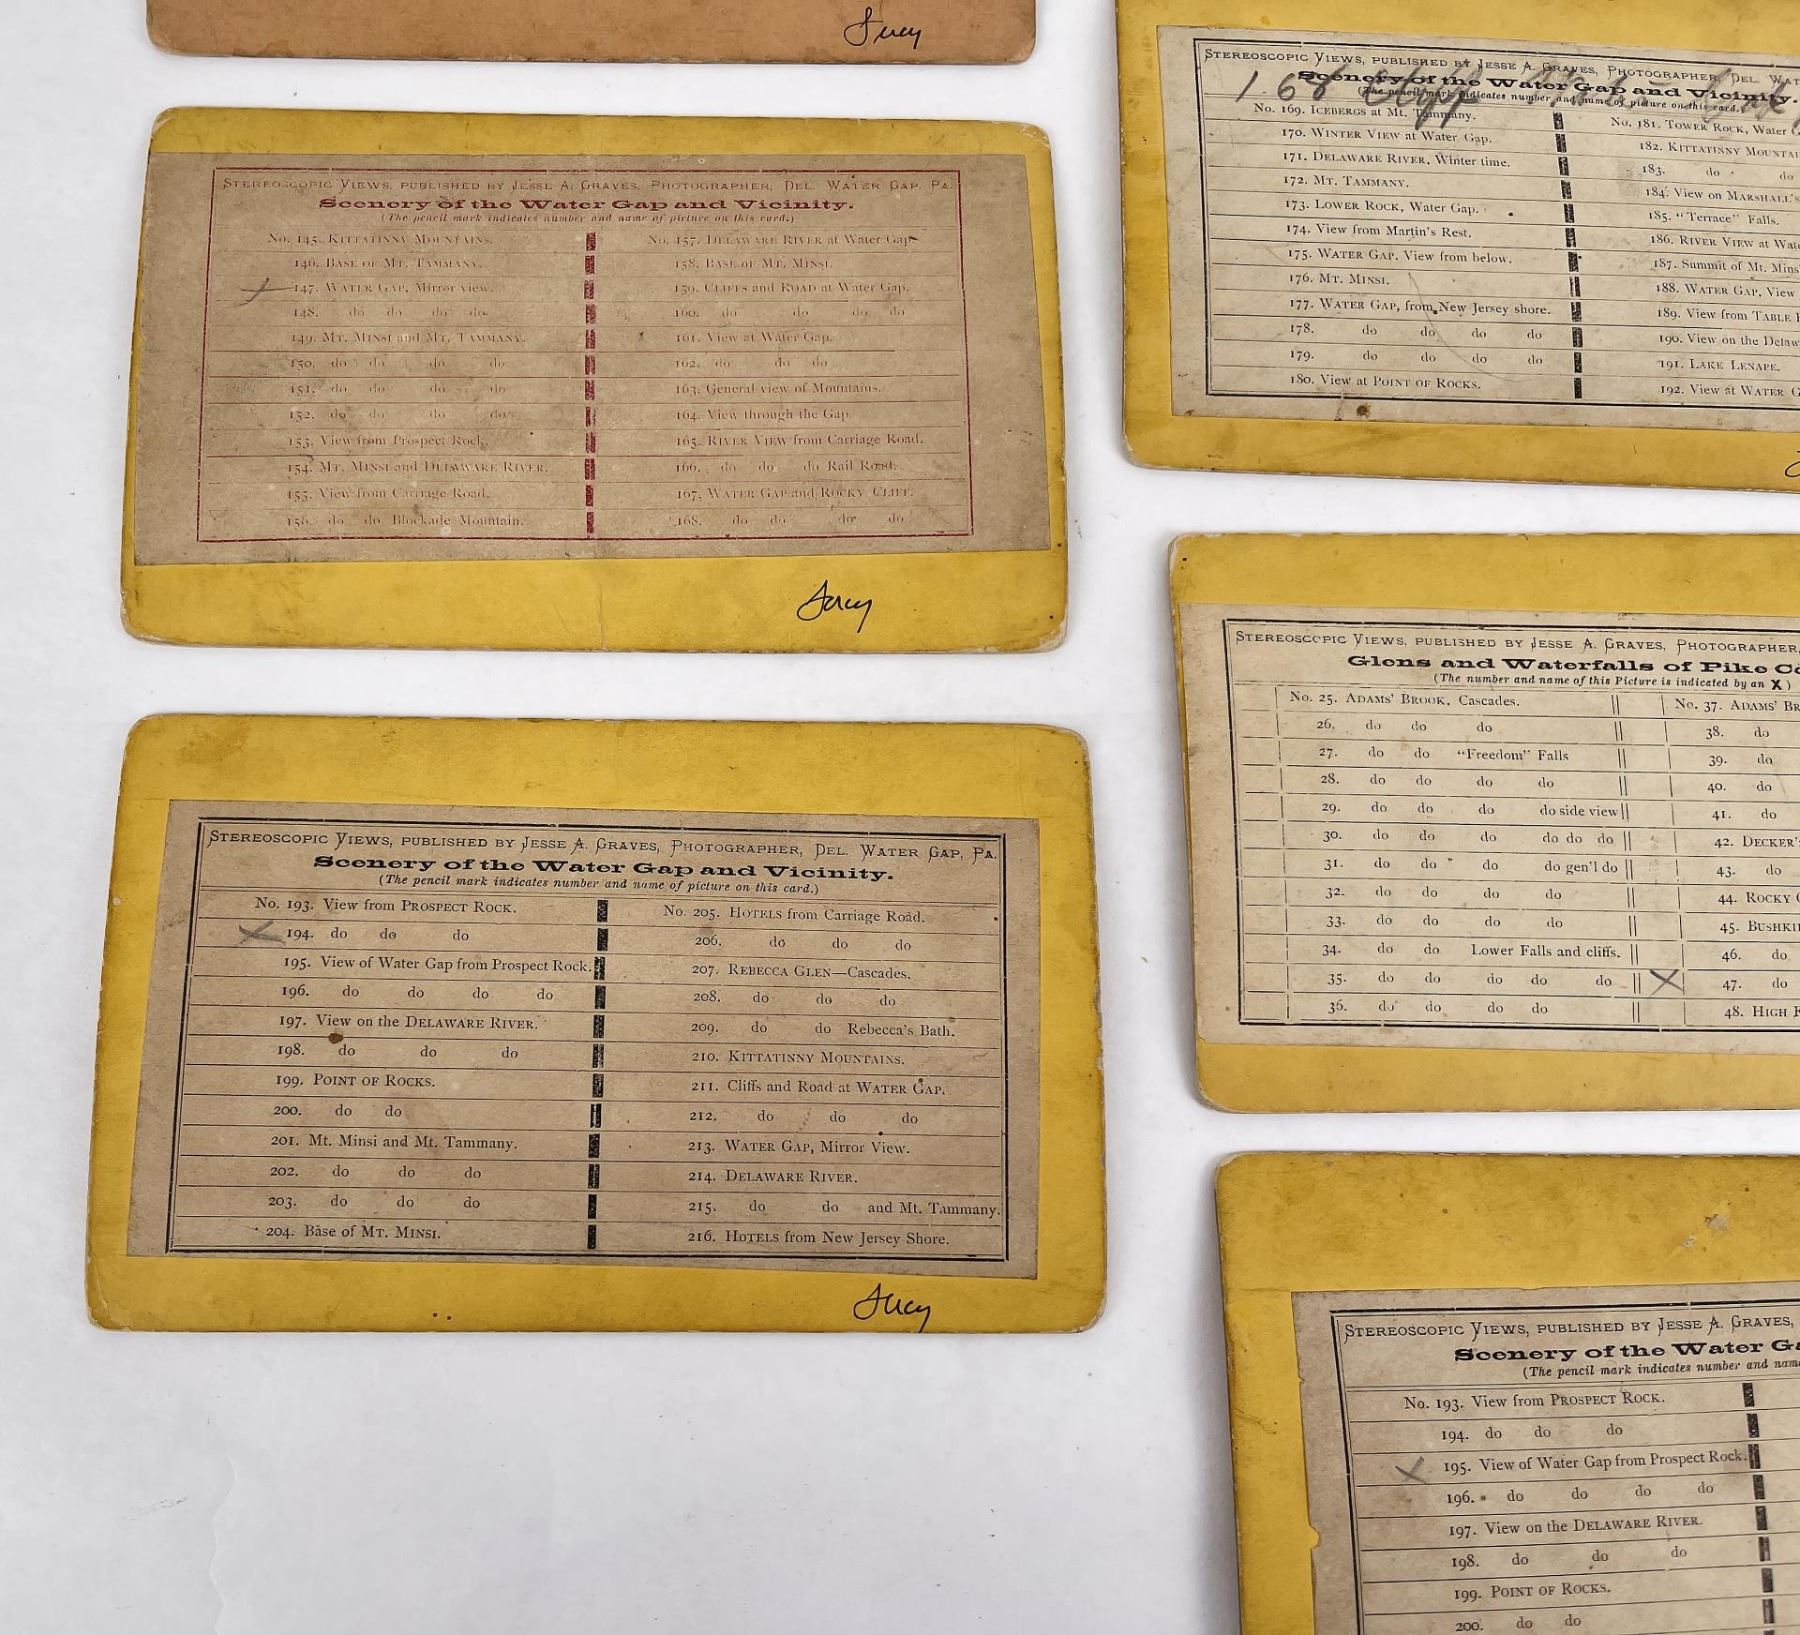 STEREOSCOPIC VIEWS, PUBLISHED BY JESSE A. GRAVES, PHOTOGRAPHER, DEL. WATER GAP, PA.
Scenery of the Water Gap and Vicinity.
(The pencil mark indicates number and name of picture on this card.)
No. 145. KITTATINNY MOUNTAINS.
146. BASE OF MT. TAMMANY.
147. WATER GAP, Mirror view.
148. do do do do
149. MT. MINSI and MT. TAMMANY.
150. do do do do
151. do do do do
152. do do do do
153. View from Prospect Rock.
154. MT. MINSI and DELAWARE RIVER.
155. View from Carriage Road.
156. do do Blockade Mountain.
No. 157. DELAWARE RIVER at Water Gap
158. BASE OF MT. MINSI.
159. CLIFFS and ROAD at Water Gap.
160. do do do do
161. View at Water Gap.
162. do do do
163. General view of Mountains.
164. View through the Gap.
165. RIVER VIEW from Carriage Road.
166. do do do Rail Road.
167. WATER GAP and ROCKY CLIFF.
168. do do do do
STEREOSCOPIC VIEWS, PUBLISHED BY JESSE A. GRAVES, PHOTOGRAPHER, DEL. WATER GAP, PA.
Scenery of the Water Gap and Vicinity.
(The pencil mark indicates number and name of picture on this card.)
No. 193. View from PROSPECT ROCK.
194. do do do
195. View of Water Gap from Prospect Rock.
196. do do do do
197. View on the DELAWARE RIVER.
198. do do do
199. POINT OF ROCKS.
200. do do
201. Mt. Minsi and Mt. Tammany.
202. do do do
203. do do do
204. Base of MT. MINSI.
No. 205. HOTELS from Carriage Road.
206. do do do
207. REBECCA GLEN—Cascades.
208. do do do
209. do do Rebecca's Bath.
210. KITTATINNY MOUNTAINS.
211. Cliffs and Road at WATER GAP.
212. do do do
213. WATER GAP, Mirror View.
214. DELAWARE RIVER.
215. do do and Mt. Tammany.
216. HOTELS from New Jersey Shore.
STEREOSCOPIC VIEWS, PUBLISHED BY JESSE A. GRAVES, PHOTOGRAPHER, DEL. WAT
Scenery of the Water Gap and Vicinity.
(The pencil mark indicates number and name of picture on this card.)
168
No. 169. ICEBERGS at Mt. Tammany.
170. WINTER VIEW at Water Gap.
171. DELAWARE RIVER, Winter time.
172. MT. TAMMANY.
173. LOWER ROCK, Water Gap.
174. View from Martin's Rest.
175. WATER GAP. View from below.
176. MT. MINSI.
177. WATER GAP, from New Jersey shore.
178. do do do do
179. do do do do
180. View at POINT OF ROCKS.
No. 181. TOWER ROCK, Water
182. KITTATINNY MOUNTAI
183. do do
184. View on MARSHALL'S
185. "Terrace" Falls.
186. RIVER VIEW at Wate
187. Summit of Mt. Mins
188. WATER GAP, View
189. View from TABLE
190. View on the Delaw
191. LAKE LENAPE.
192. View at WATER G
STEREOSCOPIC VIEWS, PUBLISHED BY JESSE A. GRAVES, PHOTOGRAPHER,
Glens and Waterfalls of Pike Co
(The number and name of this Picture is indicated by an X)
No. 25. ADAMS' BROOK, Cascades.
26. do do do
27. do do "Freedom" Falls
28. do do do do
29. do do do do side view
30. do do do do do do
31. do do do do gen'l do
32. do do do do
33. do do do do
34. do do Lower Falls and cliffs.
35. do do do do do
36. do do do do
No. 37. ADAMS' BR
38. do
39. do
40. do
41. do
42. DECKER'
43. do
44. ROCKY
45. BUSHKI
46. do
47. do
48. HIGH F
STEREOSCOPIC VIEWS, PUBLISHED BY JESSE A. GRAVES,
Scenery of the Water Ga
(The pencil mark indicates number and name
No. 193. View from PROSPECT ROCK.
194. do do do
195. View of Water Gap from Prospect Rock.
196. do do do do
197. View on the DELAWARE RIVER.
198. do do do
199. POINT OF ROCKS.
200. do do